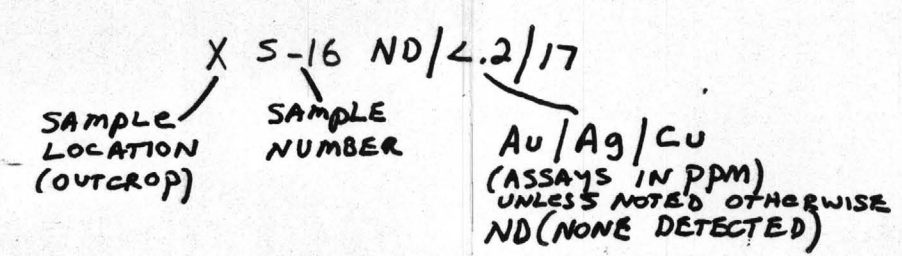 X S-16 ND/<.2/17
SAMPLE
LOCATION
(OUTCROP)
SAMPLE
NUMBER
Au/Ag/Cu
(ASSAYS IN PPM)
UNLESS NOTED OTHERWISE
ND (NONE DETECTED)